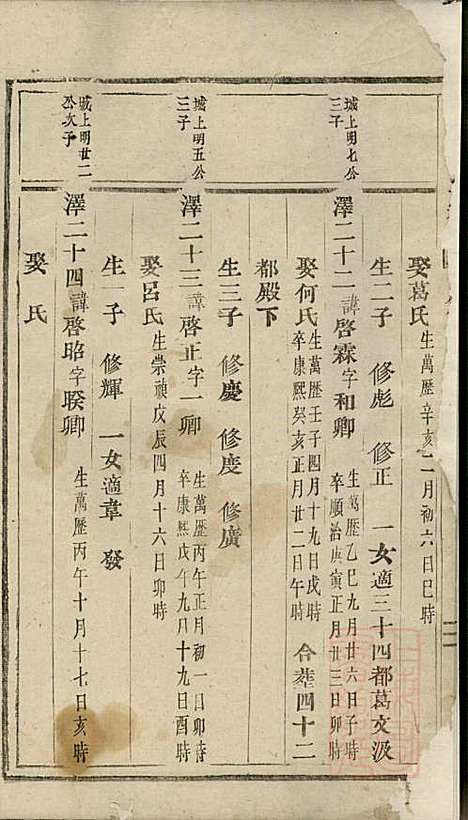 娶葛氏生萬歷辛亥二月初六日巳時
生二子 修彪 修正 一女適三十四都葛文汲
城上明七公三子
澤二十二諱啓霖字和卿生萬歷乙巳九月廿六日子時卒順治庚寅正月廿三日卯時
娶何氏生萬歷壬子四月十九日戌時卒康熙癸亥正月廿二日午時合塟四十二
都殿下
生三子 修慶 修度 修廣
城上明五公三子
澤二十三諱啓正字一卿生萬歷丙午正月初一日卯時卒康熙戊午九月十九日酉時
娶呂氏生崇禎戊辰四月十六日卯時
生一子 修輝 一女適韋 發
城上明廿二公次子
澤二十四諱啓昭字睽卿生萬歷丙午十月十七日亥時
娶 氏